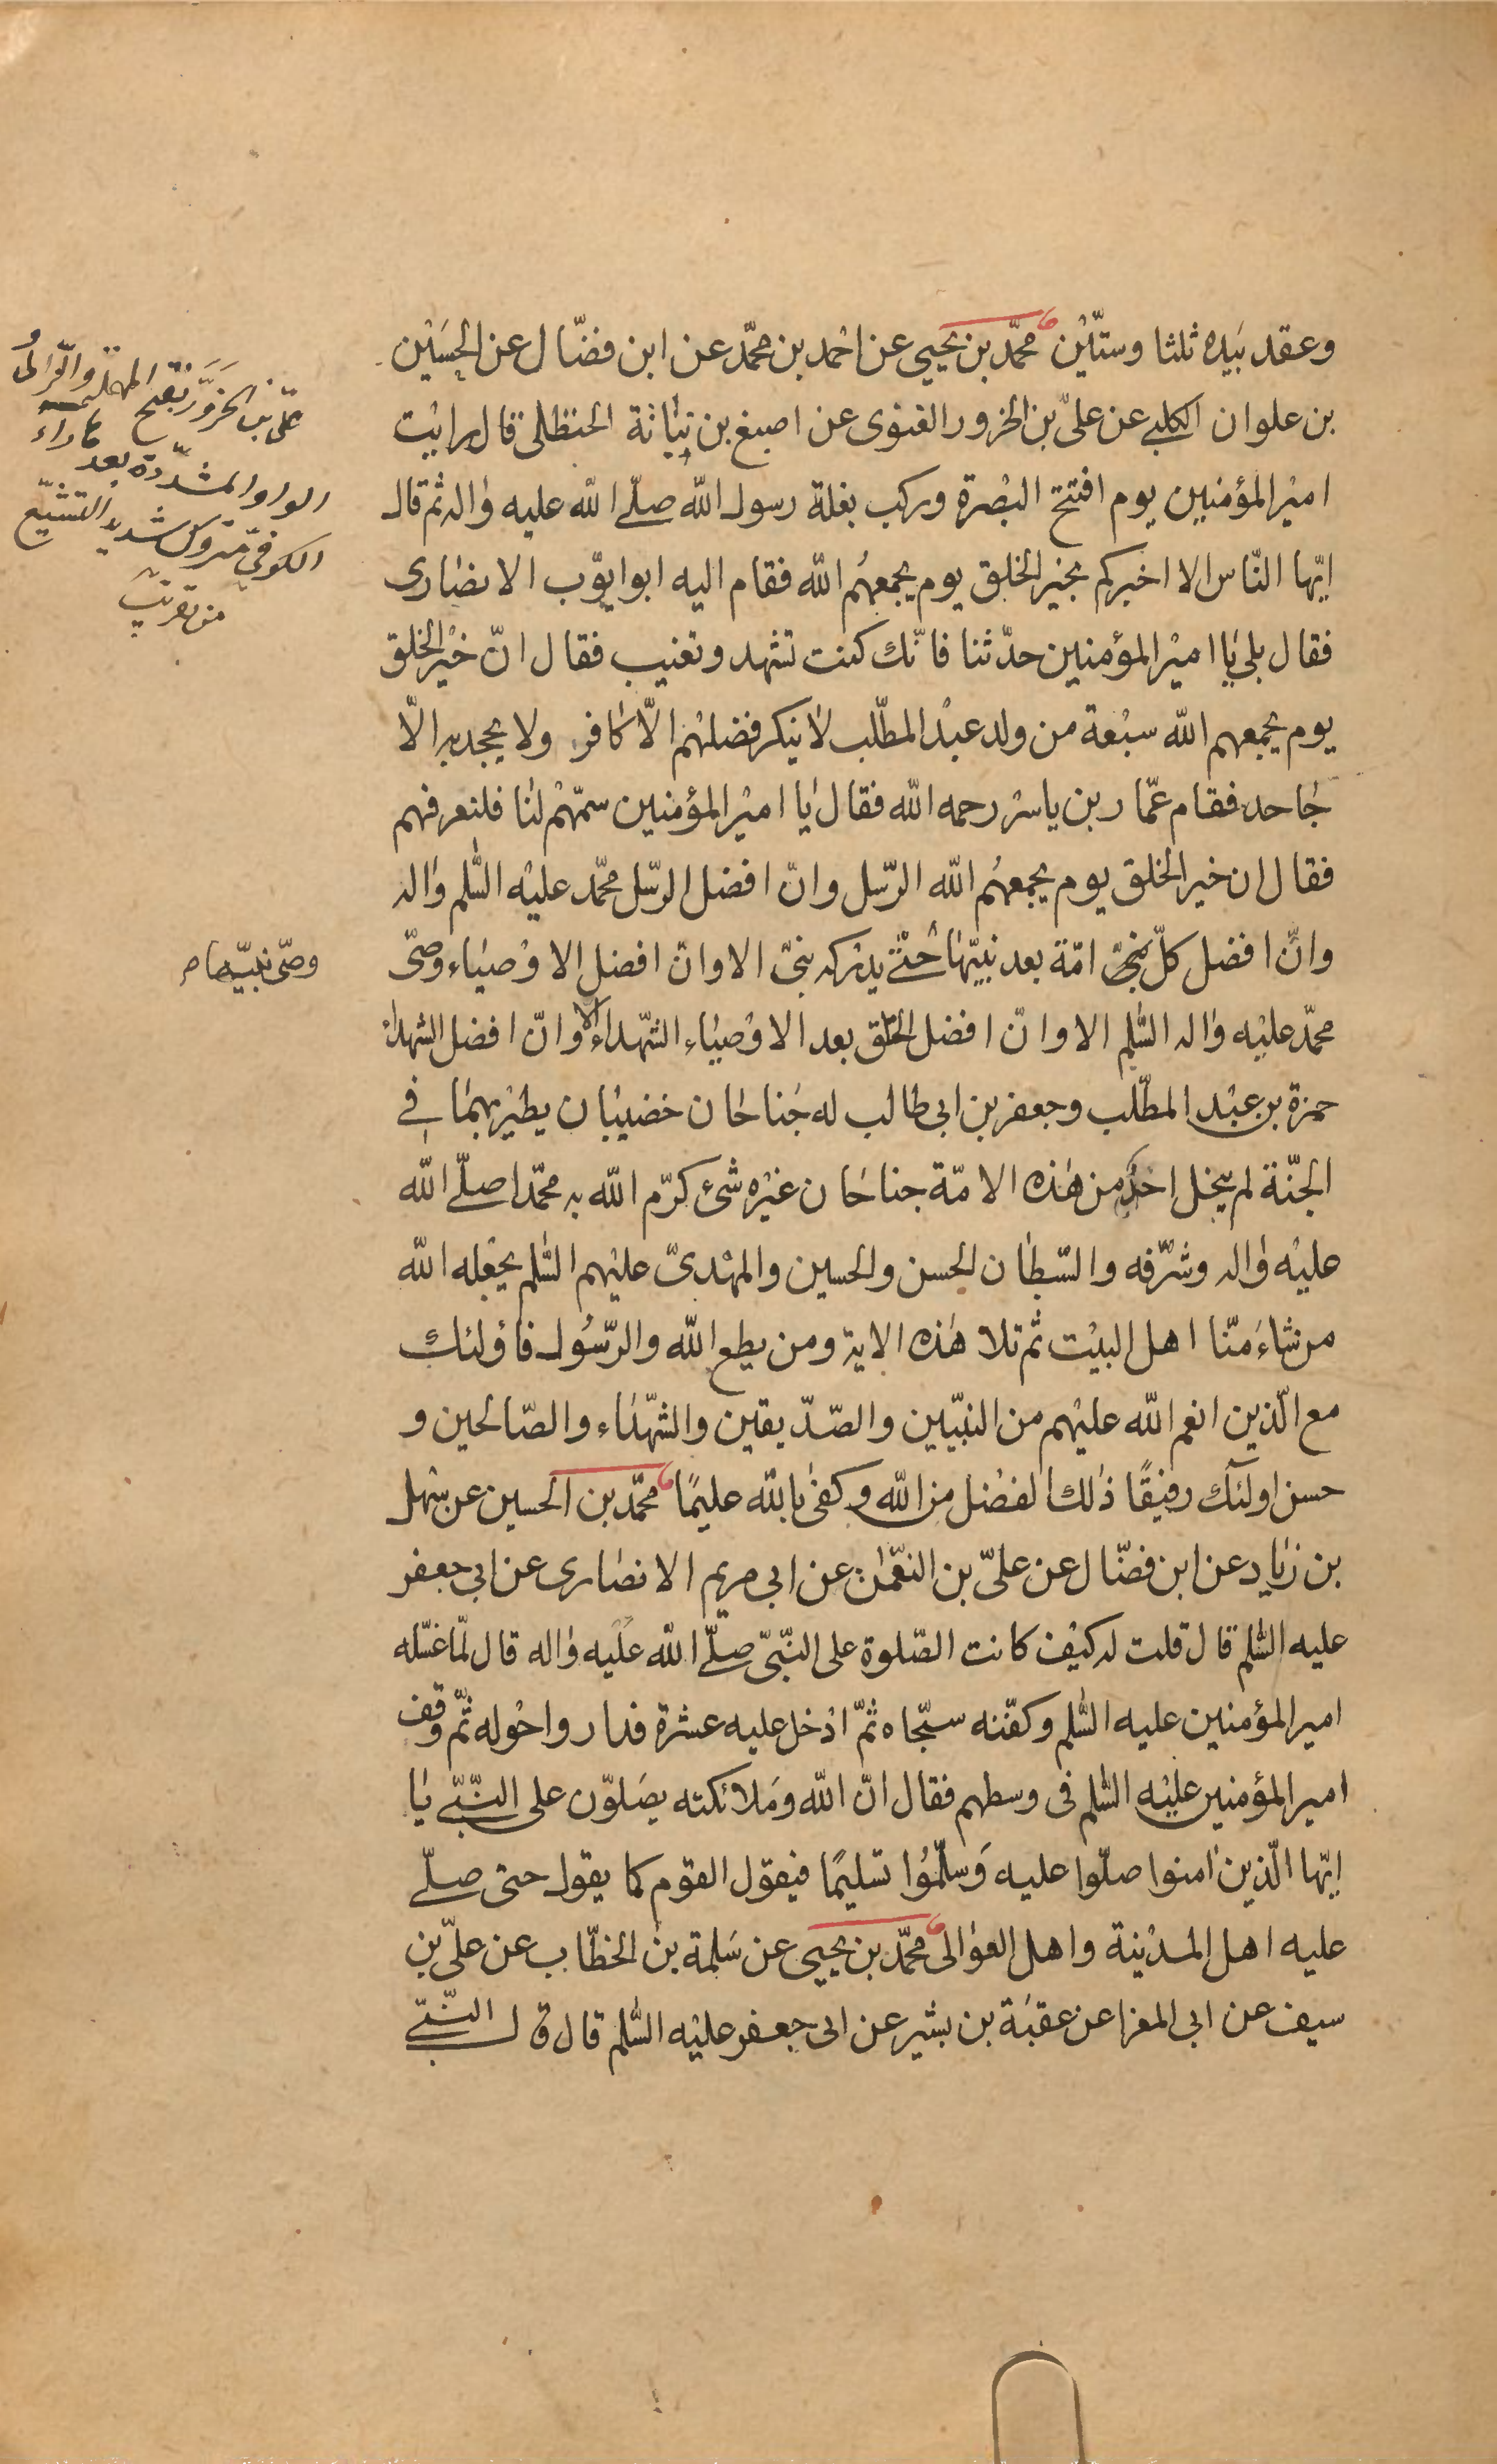 وعقد بيده ثلثا وستّين محمّد بن يحيى عن احمد بن محمّد عن ابن فضّال عن الحسَين
بن علوان الكلبى عن علىّ بن الحزور الغنوى عن اصبغ بن نباتة الحنظلى قال رايت
امير المؤمنين يوم افتتح البصرة وركب بغلة رسول الله صلّى الله عليه واله ثم قال
ايّها النّاس الا اخبركم بخير الخلق يوم يجمعهُم الله فقام اليه ابوايّوب الانصارى
فقال بلى يا امير المؤمنين حدّثنا فانّك كنت تشهد وتغيب فقال انّ خير الخلق
يوم يجمعهم الله سبعة من ولد عبد المطّلب لا ينكر فضلهم الّا كافر ولا يجحد به الّا
جاحد فقام عمّار بن ياسر رحمه الله فقال يا امير المؤمنين سمّهم لنا فلنعرفهم
فقال ان خير الخلق يوم يجمعهُم الله الرّسل وانّ افضل الرّسل محمّد عليه السّلم واله
وانّ افضل كلّ امّة بعد نبيّها حتّى يدركه نبىّ الا وانّ افضل الاوصياء وصىّ
محمّد عليه واله السّلم الا وانّ افضل الخلق بعد الاوصياء الشّهداء الا وانّ افضل الشهداء
حمزة بن عبد المطّلب وجعفر بن ابى طالب له جَناحان خضيبان يطير بهما فى
الجنّة لم يخل احد من هذه الامّة جناحان غيره شئ كرّم الله به محمّدا صلّى الله
عليه واله وشرّفه والسّبطان الحسن والحسين والمهدىّ عليهم السّلم يجعله الله
من شاءَ منّا اهل البيت ثم تلا هذه الاية ومن يطع الله والرّسُول فاؤلئك
مع الّذين انعم الله عليهم من النبيّين والصّدّيقين والشّهداء والصّالحين و
حسن اولئك رفيقًا ذلك الفضل من الله وكفى بالله عليمًا محمّد بن الحسين عن سهل
بن زياد عن ابن فضّال عن علىّ بن النعّمان عن ابى مريم الانصارى عن ابى جعفر
عليه السّلم قال قلت له كيف كانت الصّلوة على النّبىّ صلّى الله عليه واله قال لمّا غسّله
امير المؤمنين عليه السّلم وكفّنه سجّاه ثمّ ادخل عليه عشرة فداروا حوله ثمّ وقف
امير المؤمنين عليه السّلم فى وسطهم فقال انّ الله وَملائكته يصَلوّن على النّبىّ يا
ايّها الّذين امنوا صلّوا عليه وَسلّموُا تسليمًا فيقول القوم كما يقول حتى صلّى
عليه اهل المدينة واهل العوالى محمّد بن يحيى عن سَلمة بن الخطّاب عن علىّ بن
سيف عن ابى المغزا عن عقبَة بن بشير عن ابى جعفر عليه السّلم قال قال النّبىّ
علىّ بن الحَزَوَّر بفتح المهملة والزاى و
الواو المشدّدة بعدها راء
الكوفىّ متروك شديد التشيّع
من تقريب
وصىّ نبيّها